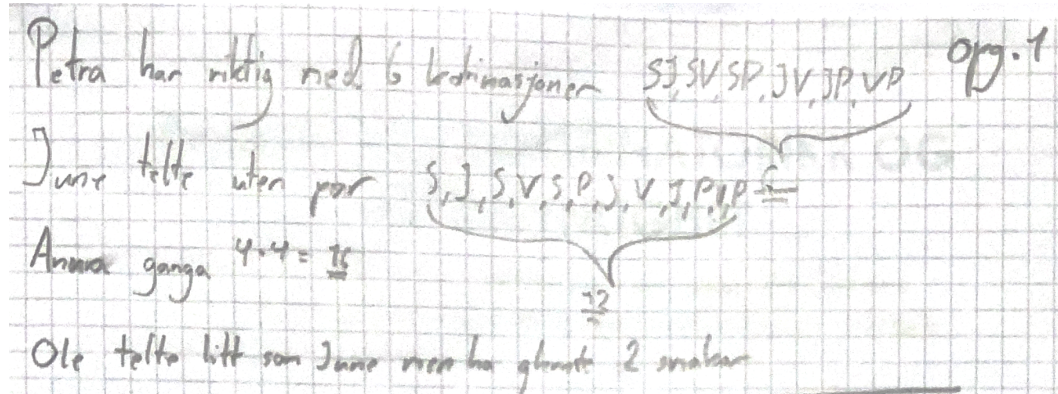 opg. 1
Petra har riktig med 6 kobinasjoner SJ, SV, SP, JV, JP, VP
6
June telte uten par S, J, S, V, S, P, J, V, J, P, V, P
12
Anna ganga 4·4 = 16
Ole telte litt som June men ha glemte 2 smaker